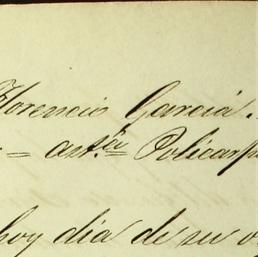 Florencio García.
= ant.ª Policarp
hoy dia de su